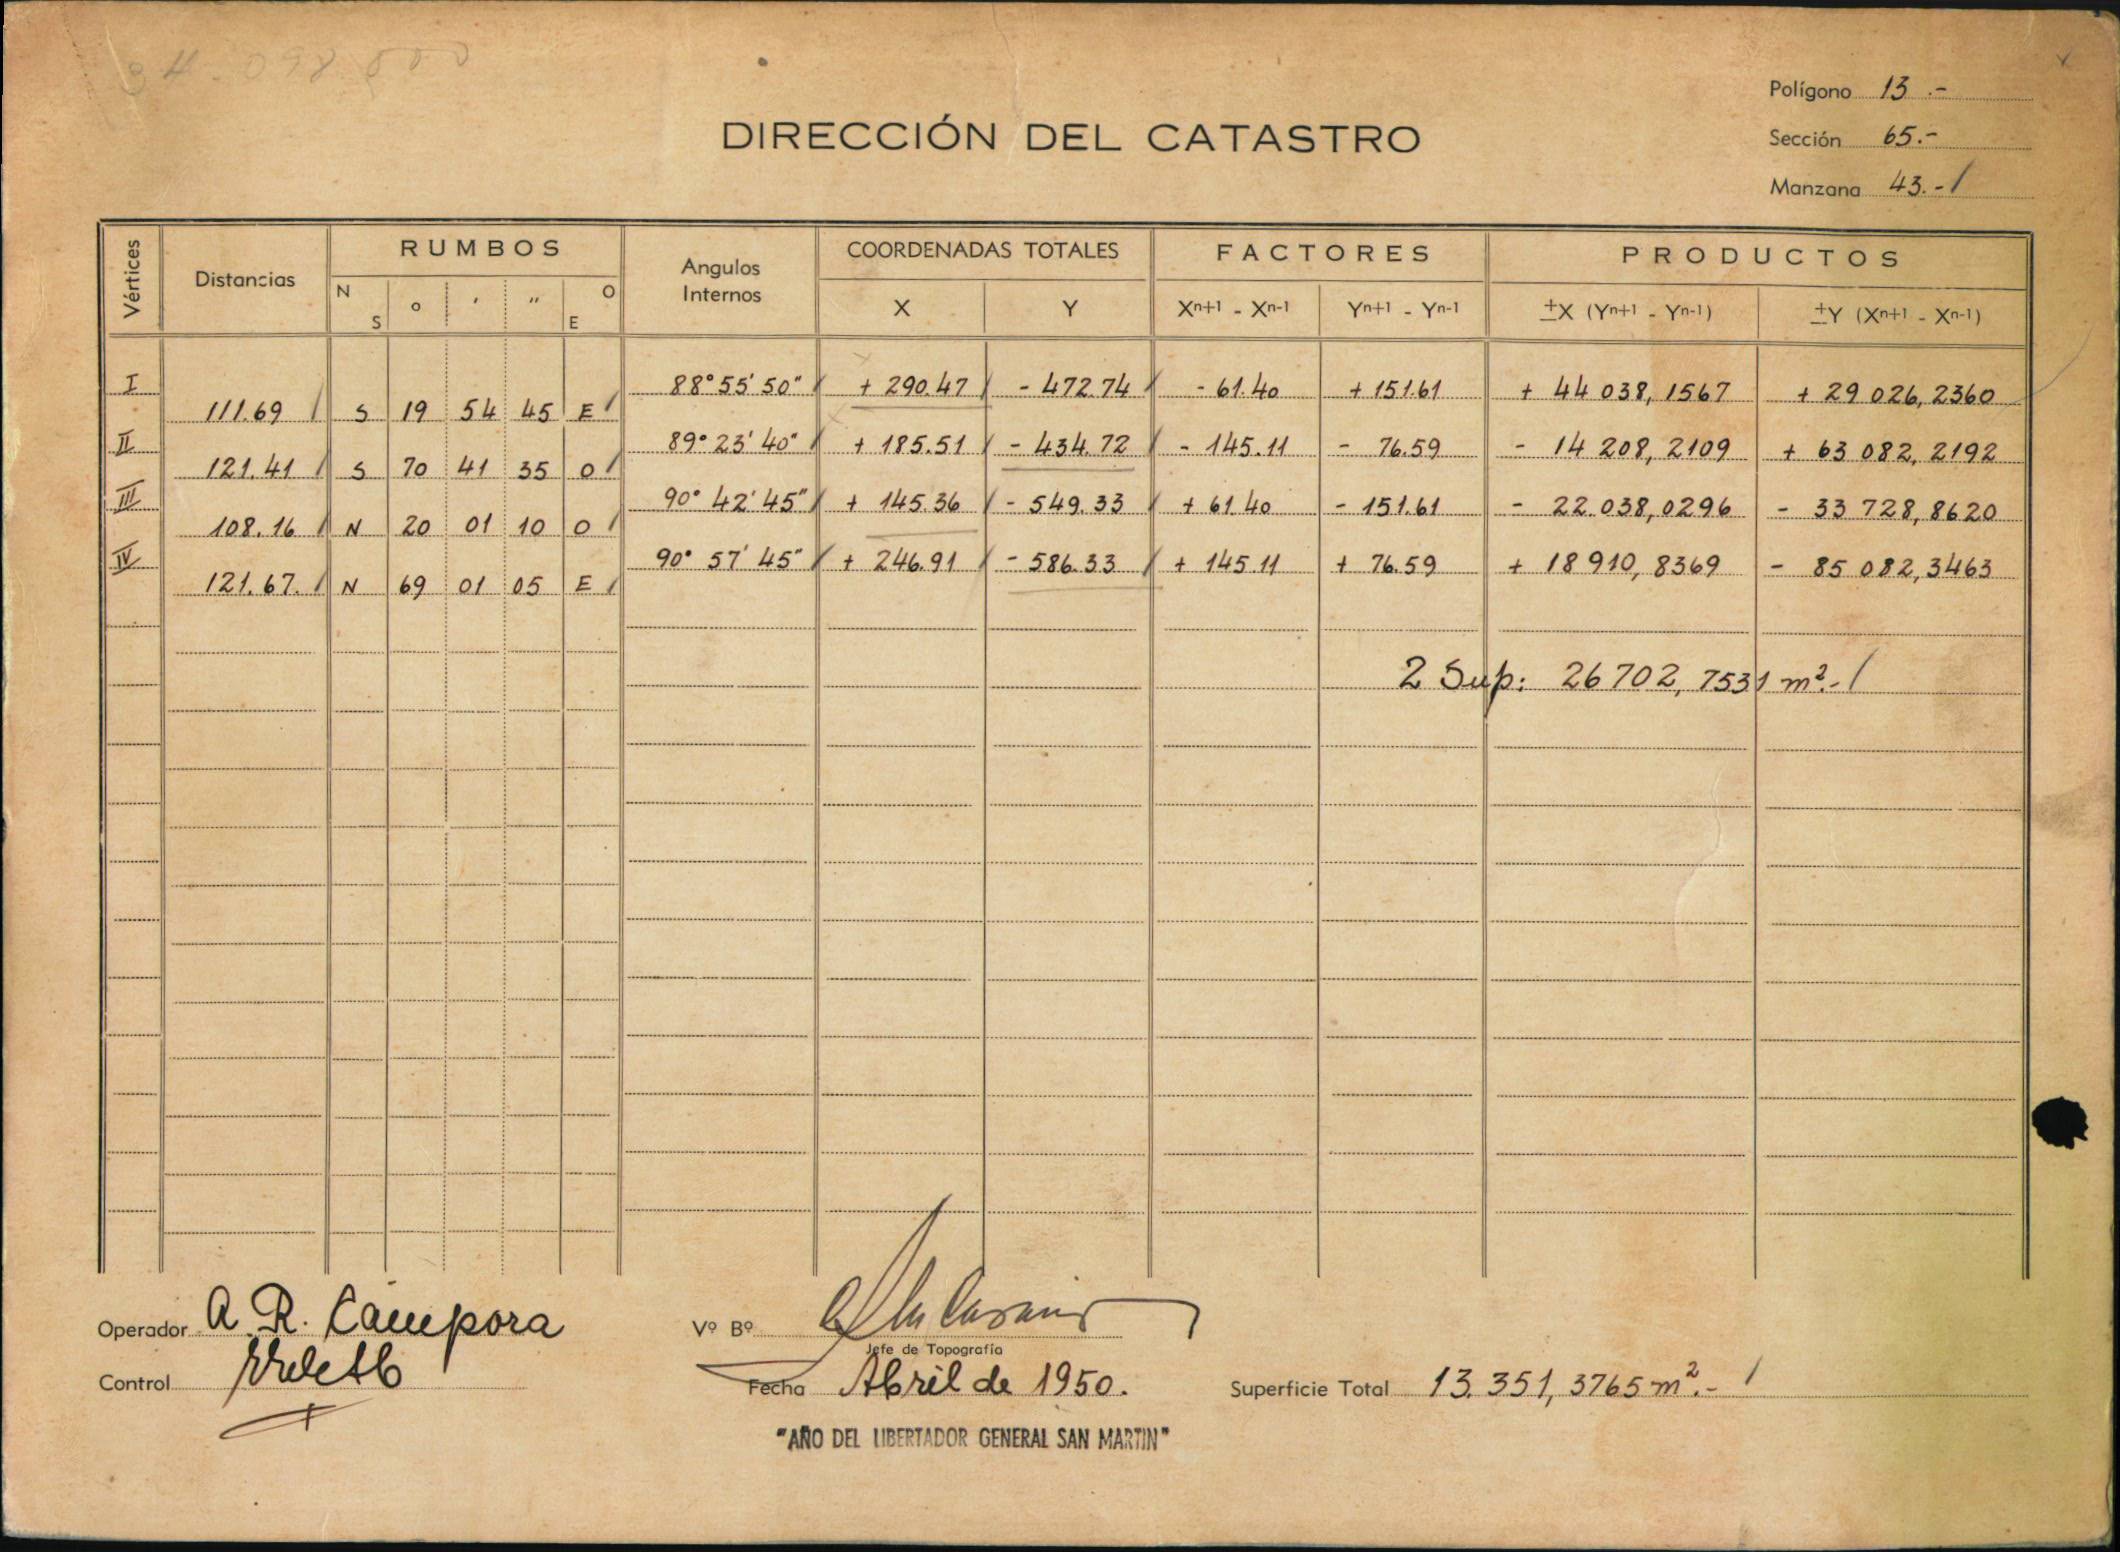 34.098
Polígono 13.-
DIRECCIÓN DEL CATASTRO
Sección 65.-
Manzana 43.-/
Vértices Distancias RUMBOS Angulos Internos COORDENADAS TOTALES FACTORES PRODUCTOS
N S ° ' " O E X Y Xn+1 - Xn-1 Yn+1 - Yn-1 ±X (Yn+1 - Yn-1) ±Y (Xn+1 - Xn-1)
I 88° 55' 50" / + 290.47 / - 472.74 / - 61.40 + 151.61 + 44 038,1567 + 29 026,2360
111.69 / S 19 54 45 E /
II 89° 23' 40" / + 185.51 / - 434.72 / - 145.11 - 76.59 - 14 208,2109 + 63 082,2192
121.41 / S 70 41 35 O /
III 90° 42' 45" / + 145.36 / - 549.33 / + 61.40 - 151.61 - 22.038,0296 - 33 728,8620
108.16 / N 20 01 10 O /
IV 90° 57' 45" / + 246.91 / - 586.33 / + 145.11 + 76.59 + 18 910,8369 - 85 082,3463
121.67. / N 69 01 05 E /
2 Sup: 26 702,7531 m².- /
Operador A. R. Cámpora Vº Bº
Jefe de Topografía
Control Fecha Abril de 1950. Superficie Total 13.351,3765 m².- /
"AÑO DEL LIBERTADOR GENERAL SAN MARTIN"